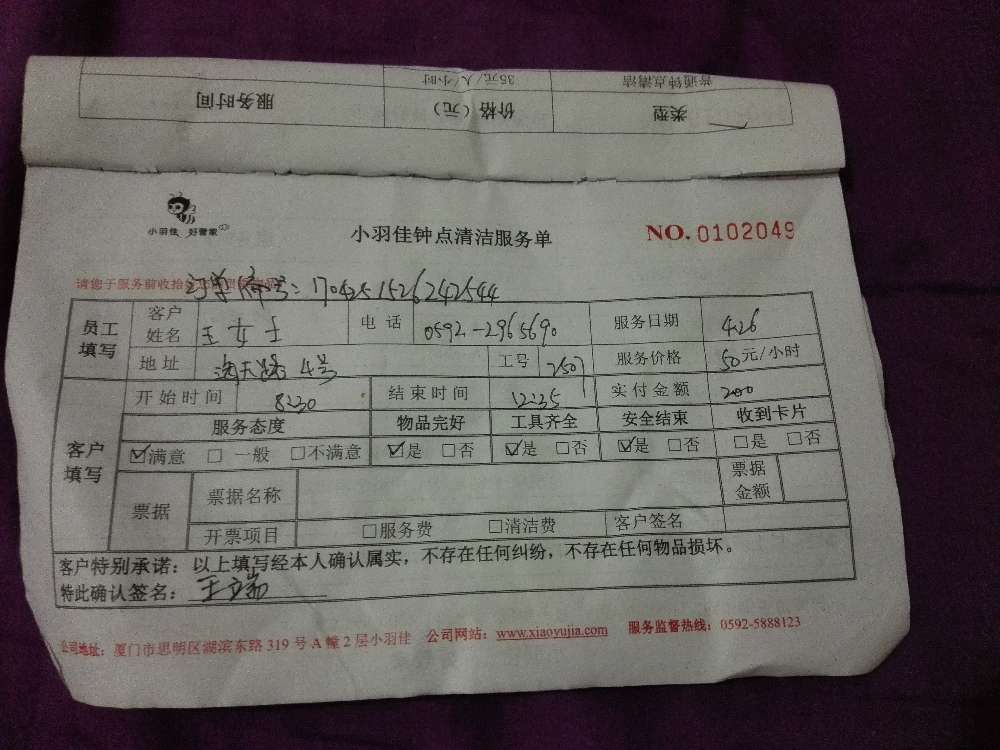 普通钟点清洁 35元/人/小时
类型 价格（元） 服务时间
小羽佳 好管家
小羽佳钟点清洁服务单
NO. 0102049
请您于服务前收拾
订单编号：1704251526242544
员工填写 客户姓名 王女士 电话 0592-2965690 服务日期 4.26
地址 4号 工号 服务价格 50元/小时
客户填写 开始时间 8:30 结束时间 12:35 实付金额 200
服务态度 物品完好 工具齐全 安全结束 收到卡片
☑满意 □一般 □不满意 ☑是 □否 ☑是 □否 ☑是 □否 □是 □否
票据 票据名称 票据金额
开票项目 □服务费 □清洁费 客户签名
客户特别承诺：以上填写经本人确认属实，不存在任何纠纷，不存在任何物品损坏。
特此确认签名：王立端
公司地址：厦门市思明区湖滨东路319号A幢2层小羽佳 公司网站：www.xiaoyujia.com 服务监督热线：0592-5888123